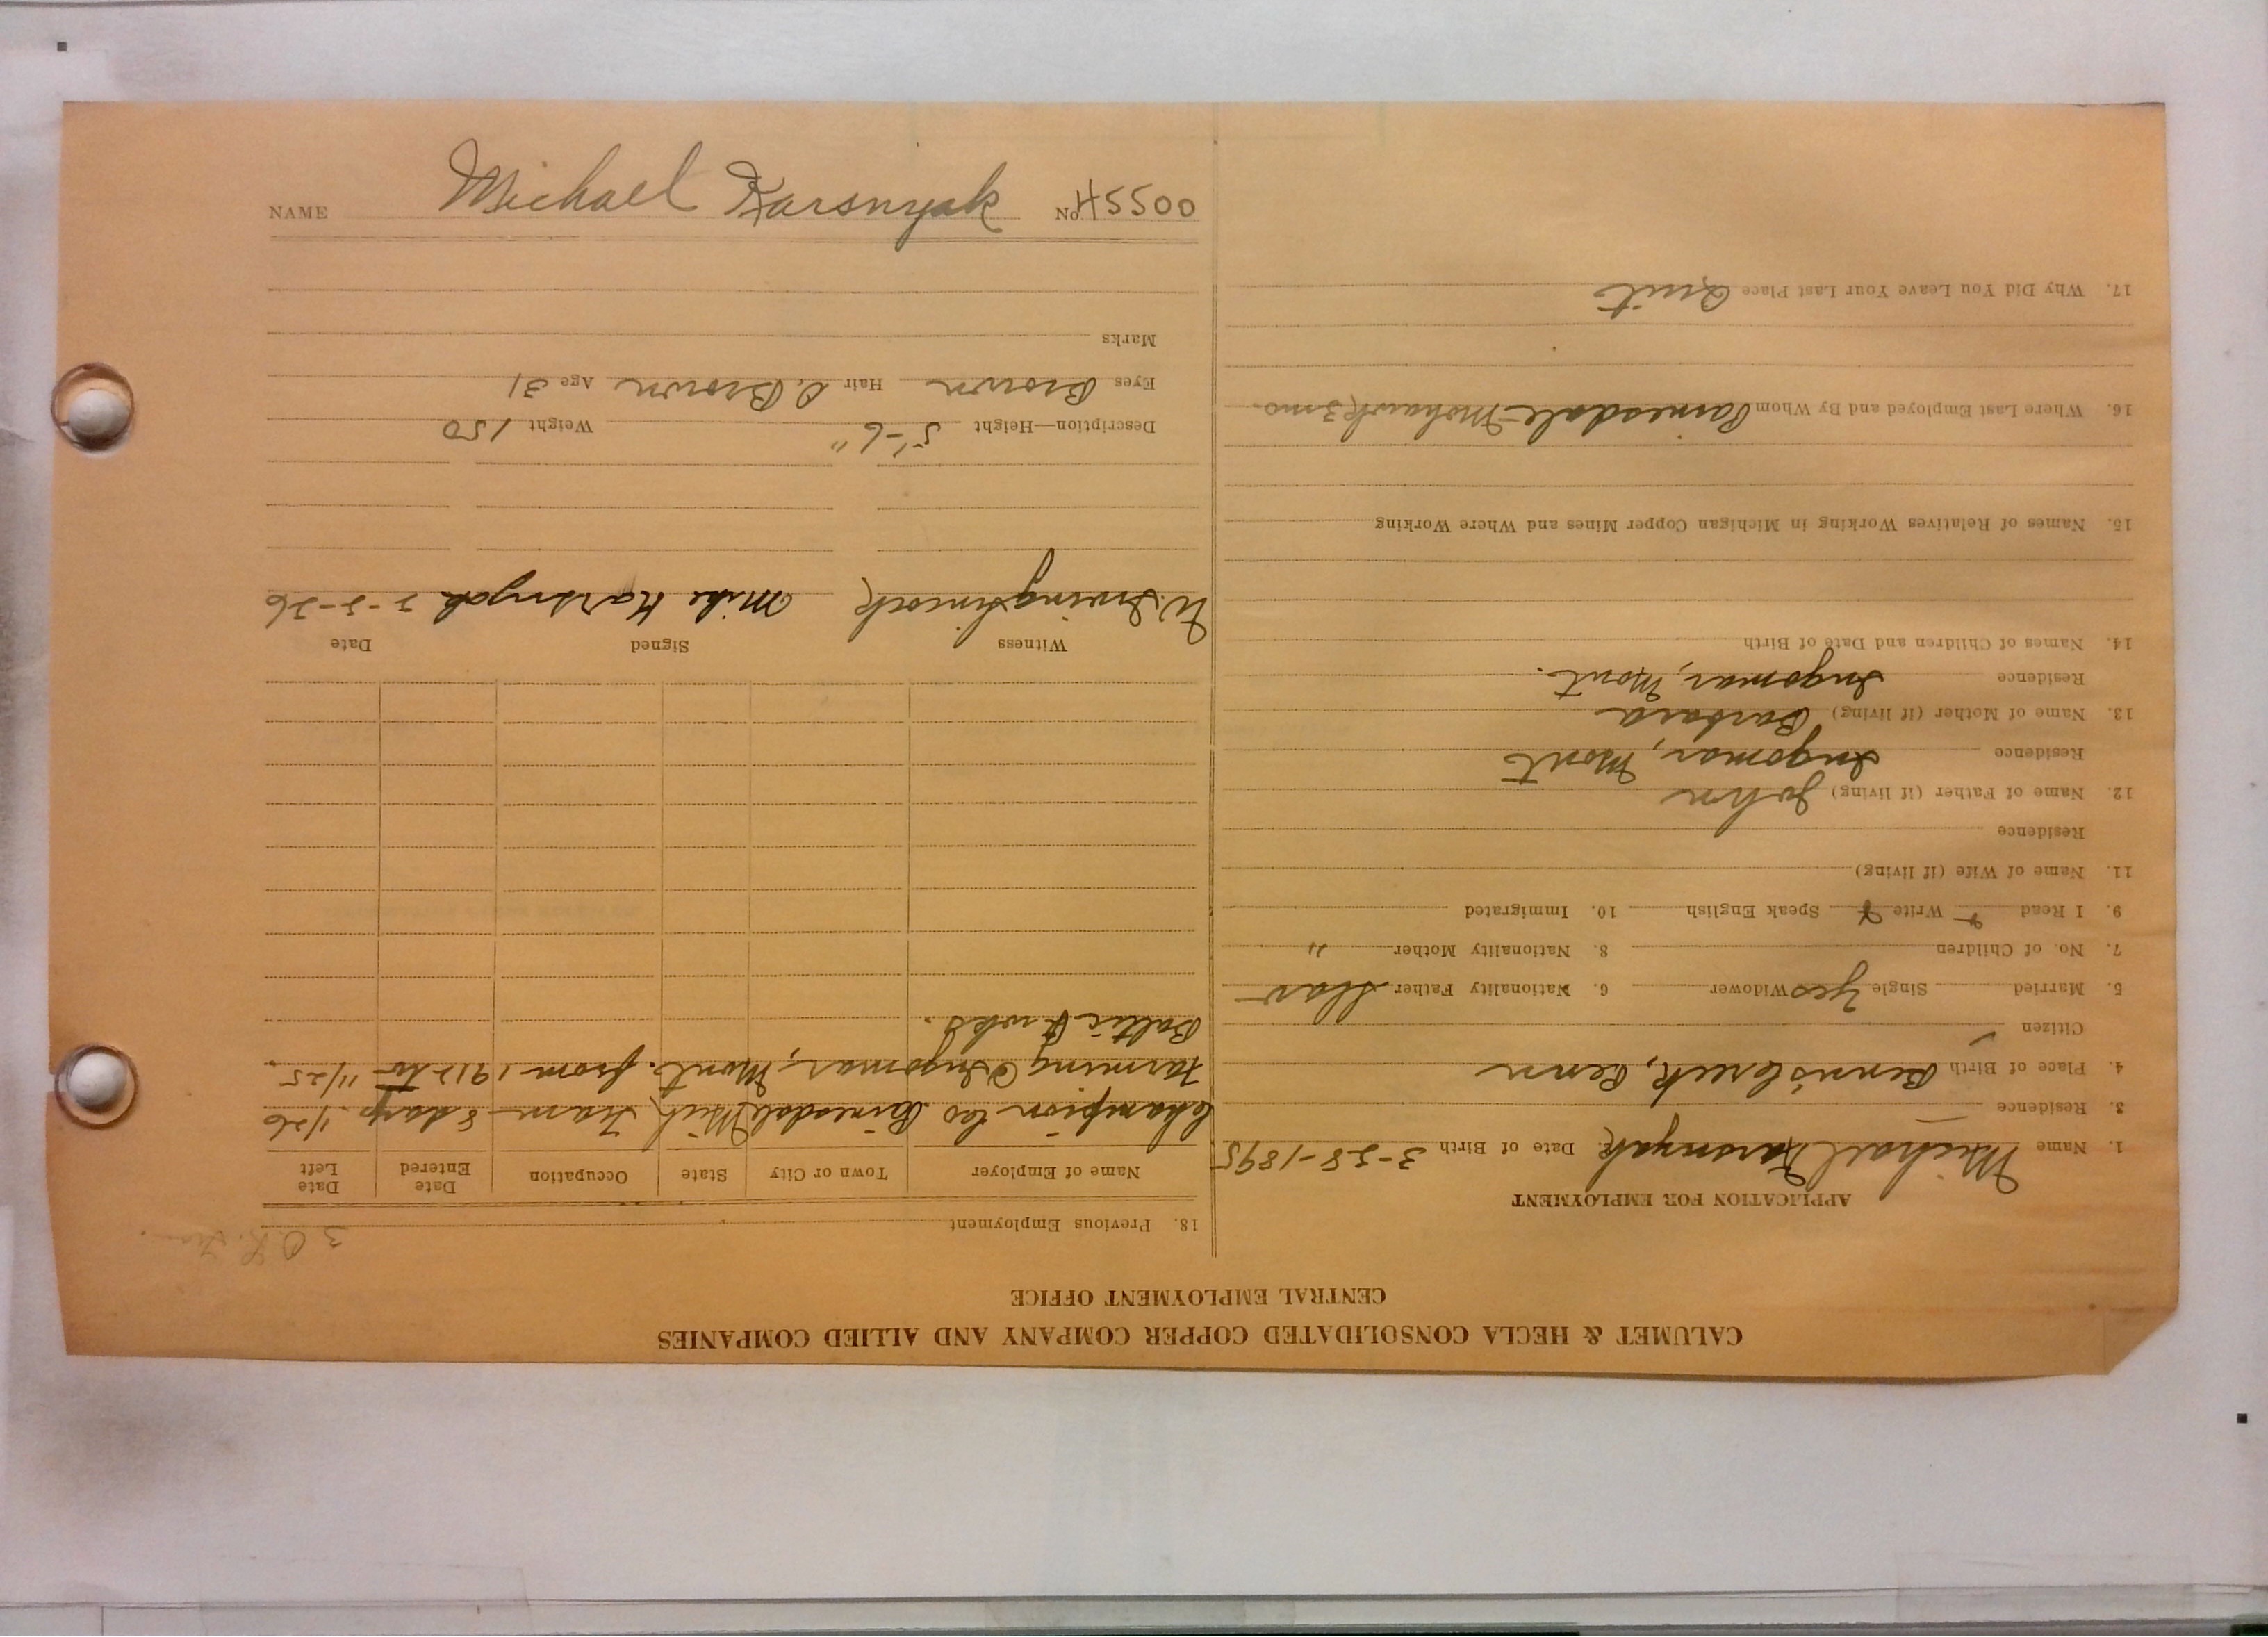 NAME Michael Karsnyak No. 45500
CALUMET & HECLA CONSOLIDATED COPPER COMPANY AND ALLIED COMPANIES
CENTRAL EMPLOYMENT OFFICE
APPLICATION FOR EMPLOYMENT
1. Name Michael Karsnyak Date of Birth 3-28-1895
3. Residence
4. Place of Birth Penn
Citizen
5. Married Single Yes Widower 6. Nationality Father Slav
7. No. of Children 8. Nationality Mother "
9. I Read Write Speak English 10. Immigrated
11. Name of Wife (if living)
Residence
12. Name of Father (if living) John
Residence Ingomar, Mont
13. Name of Mother (if living) Barbara
Residence Ingomar, Mont.
14. Names of Children and Date of Birth
15. Names of Relatives Working in Michigan Copper Mines and Where Working
16. Where Last Employed and By Whom Painesdale Mohawk 3 mo.
17. Why Did You Leave Your Last Place Quit
18. Previous Employment
3 O.K.
Name of Employer Town or City State Occupation Date Entered Date Left
Champion Co Painesdale Mich Tram 8 days 1/26
Farming Ingomar, Mont. from 1912 to 11/25.
Baltic wks.
Witness Signed Date
W. Irving Mike Karsnyak 2-5-26
Description—Height 5'-6" Weight 150
Eyes Brown Hair D. Brown Age 31
Marks